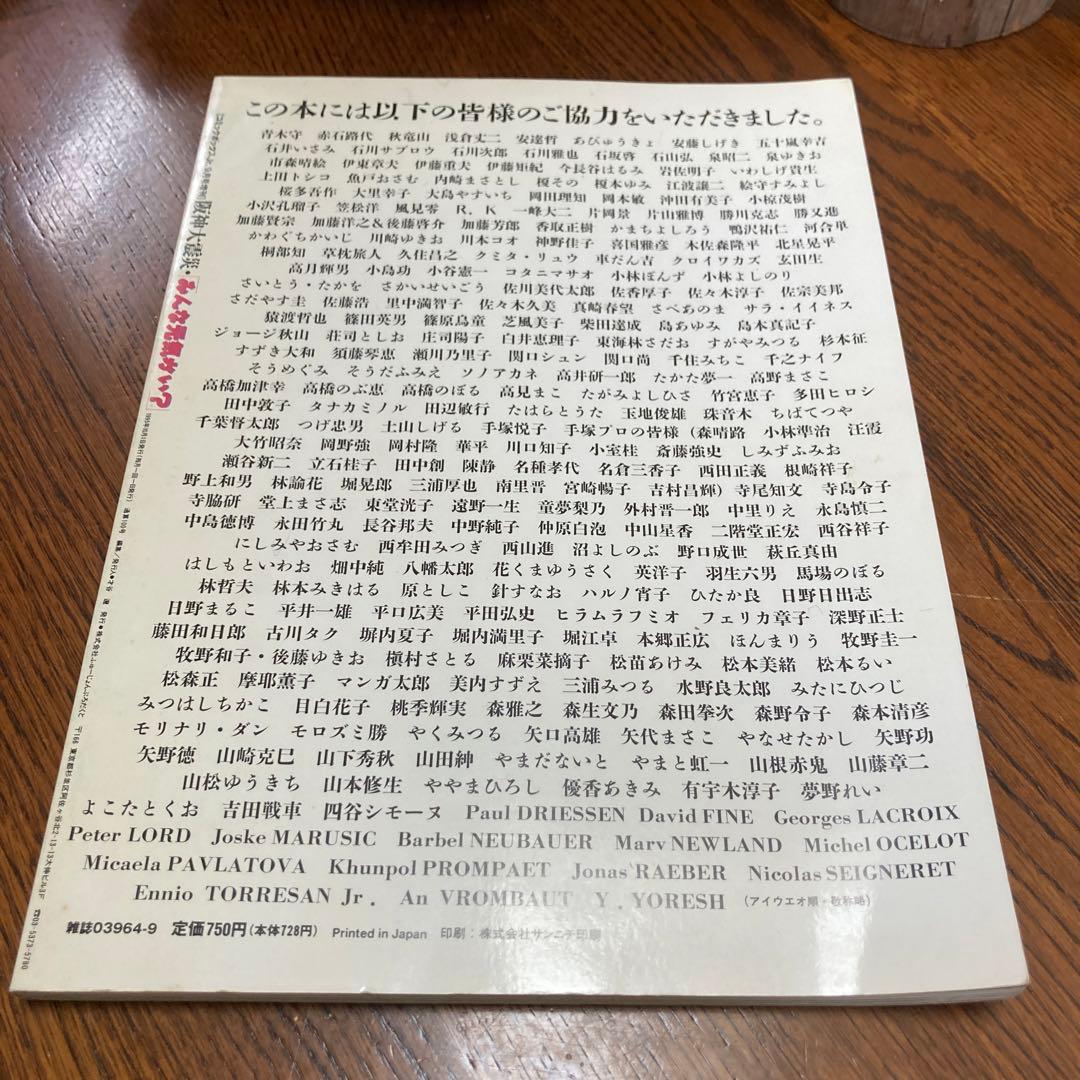 この本には以下の皆様のご協力をいただきました。
青木守 赤石路代 秋竜山 浅倉丈二 安達哲 あびゅうきょ 安藤しげき 五十嵐幸吉
石井いさみ 石川サブロウ 石川次郎 石川雅也 石坂啓 石山弘 泉昭二 泉ゆきお
市森晴絵 伊東章夫 伊藤重夫 伊藤矩紀 今長谷はるみ 岩佐明子 いわしげ貴生
上田トシコ 魚戸おさむ 内崎まさとし 榎その 榎本ゆみ 江波譲二 絵守すみよし
桜多吾作 大里幸子 大島やすいち 岡田理知 岡本敏 沖田有美子 小椋茂樹
小沢孔瑠子 笠松洋 風見零 R.K 一峰大二 片岡景 片山雅博 勝川克志 勝又進
加藤賢宗 加藤洋之&後藤啓介 加藤芳郎 香取正樹 かまちよしろう 鴨沢祐仁 河合単
かわぐちかいじ 川崎ゆきお 川本コオ 神野佳子 喜国雅彦 木佐森隆平 北星晃平
桐部知 草枕旅人 久住昌之 クミタ・リュウ 車だん吉 クロイワカズ 玄田生
高月輝男 小島功 小谷憲一 コタニマサオ 小林ぽんず 小林よしのり
さいとう・たかを さかいせいごう 佐川美代太郎 佐香厚子 佐々木淳子 佐宗美邦
さだやす圭 佐藤浩 里中満智子 佐々木久美 真崎春望 さべあのま サラ・イイネス
猿渡哲也 篠田英男 篠原烏童 芝風美子 柴田達成 島あゆみ 島本真記子
ジョージ秋山 荘司としお 庄司陽子 白井恵理子 東海林さだお すがやみつる 杉本征
すずき大和 須藤琴恵 瀬川乃里子 関口シュン 関口尚 千住みちこ 千之ナイフ
そうめぐみ そうだふみえ ソノアカネ 高井研一郎 たかた夢一 高野まさこ
高橋加津幸 高橋のぶ恵 高橋のぼる 高見まこ たがみよしひさ 竹宮恵子 多田ヒロシ
田中敦子 タナカミノル 田辺敏行 たはらとうた 玉地俊雄 珠音木 ちばてつや
千葉督太郎 つげ忠男 土山しげる 手塚悦子 手塚プロの皆様(森晴路 小林準治 汪霞
大竹昭奈 岡野強 岡村隆 華平 川口知子 小室桂 斎藤強史 しみずふみお
瀬谷新二 立石桂子 田中創 陳静 名種孝代 名倉三香子 西田正義 根崎祥子
野上和男 林諭花 堀晃郎 三浦厚也 南里晋 宮崎暢子 吉村昌輝) 寺尾知文 寺島令子
寺脇研 堂上まさ志 東堂洸子 遠野一生 童夢梨乃 外村晋一郎 中里りえ 永島慎二
中島徳博 永田竹丸 長谷邦夫 中野純子 仲原白泡 中山星香 二階堂正宏 西谷祥子
にしみやおさむ 西牟田みつぎ 西山進 沼よしのぶ 野口成世 萩丘真由
はしもといわお 畑中純 八幡太郎 花くまゆうさく 英洋子 羽生六男 馬場のぼる
林哲夫 林本みきはる 原としこ 針すなお ハルノ宵子 ひたか良 日野日出志
日野まるこ 平井一雄 平口広美 平田弘史 ヒラムラフミオ フェリカ章子 深野正士
藤田和日郎 古川タク 塀内夏子 堀内満里子 堀江卓 本郷正広 ほんまりう 牧野圭一
牧野和子・後藤ゆきお 槇村さとる 麻栗菜摘子 松苗あけみ 松本美緒 松本るい
松森正 摩耶薫子 マンガ太郎 美内すずえ 三浦みつる 水野良太郎 みたにひつじ
みつはしちかこ 目白花子 桃季輝実 森雅之 森生文乃 森田拳次 森野令子 森本清彦
モリナリ・ダン モロズミ勝 やくみつる 矢口高雄 矢代まさこ やなせたかし 矢野功
矢野徳 山崎克巳 山下秀秋 山田紳 やまだないと やまと虹一 山根赤鬼 山藤章二
山松ゆうきち 山本修生 ややまひろし 優香あきみ 有宇木淳子 夢野れい
よこたとくお 吉田戦車 四谷シモーヌ Paul DRIESSEN David FINE Georges LACROIX
Peter LORD Joske MARUSIC Barbel NEUBAUER Marv NEWLAND Michel OCELOT
Micaela PAVLATOVA Khunpol PROMPAET Jonas RAEBER Nicolas SEIGNERET
Ennio TORRESAN Jr. An VROMBAUT Y.YORESH (アイウエオ順・敬称略)
雑誌03964-9 定価750円(本体728円) Printed in Japan 印刷:株式会社サンニチ印刷
阪神大震災・みんな元気かい?